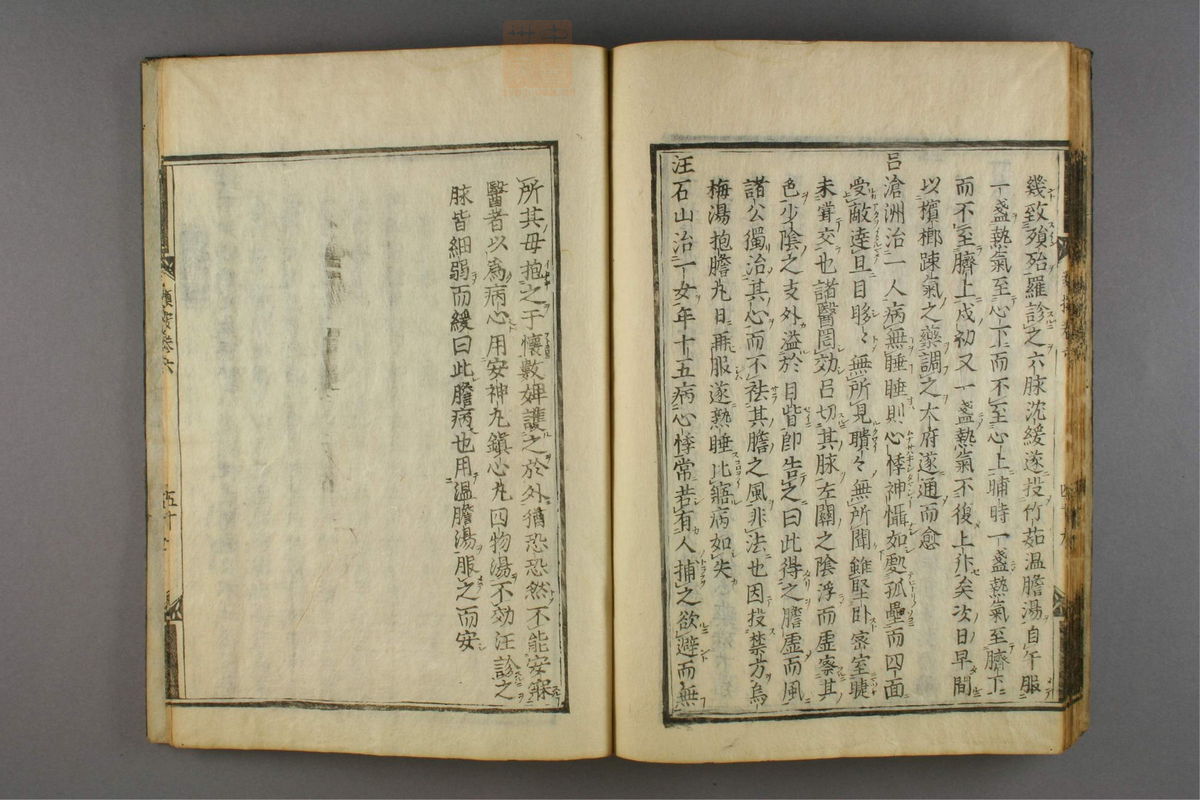 幾致殞殆羅診之六脉沈緩遂投竹茹温膽湯自午服
一盞熱氣至心下而不至心上晡時一盞熱氣至臍下
而不至臍上戌初又一盞熱氣不復上升矣次日早間
以檳榔踈氣之藥調之大府遂通而愈
呂滄洲治一人病無睡睡則心悸神懾如處孤壘而四面
受敵達旦目眵々無所見聵々無所聞雖堅卧密室睫
未甞交也諸醫罔効呂切其脉左關之陰浮而虚察其
色少陰之支外溢於目眥即告之曰此得之膽虚而風
諸公獨治其心而不祛其膽之風非法也因投禁方烏
梅湯抱膽丸日再服遂熟睡比寤病如失
汪石山治一女年十五病心悸常若有人捕之欲避而無
所其母抱之于懐數婢護之於外猶恐恐然不能安寐
醫者以爲病心用安神丸鎭心丸四物湯不効汪診之
脉皆細弱而緩曰此膽病也用温膽湯服之而安
卷六